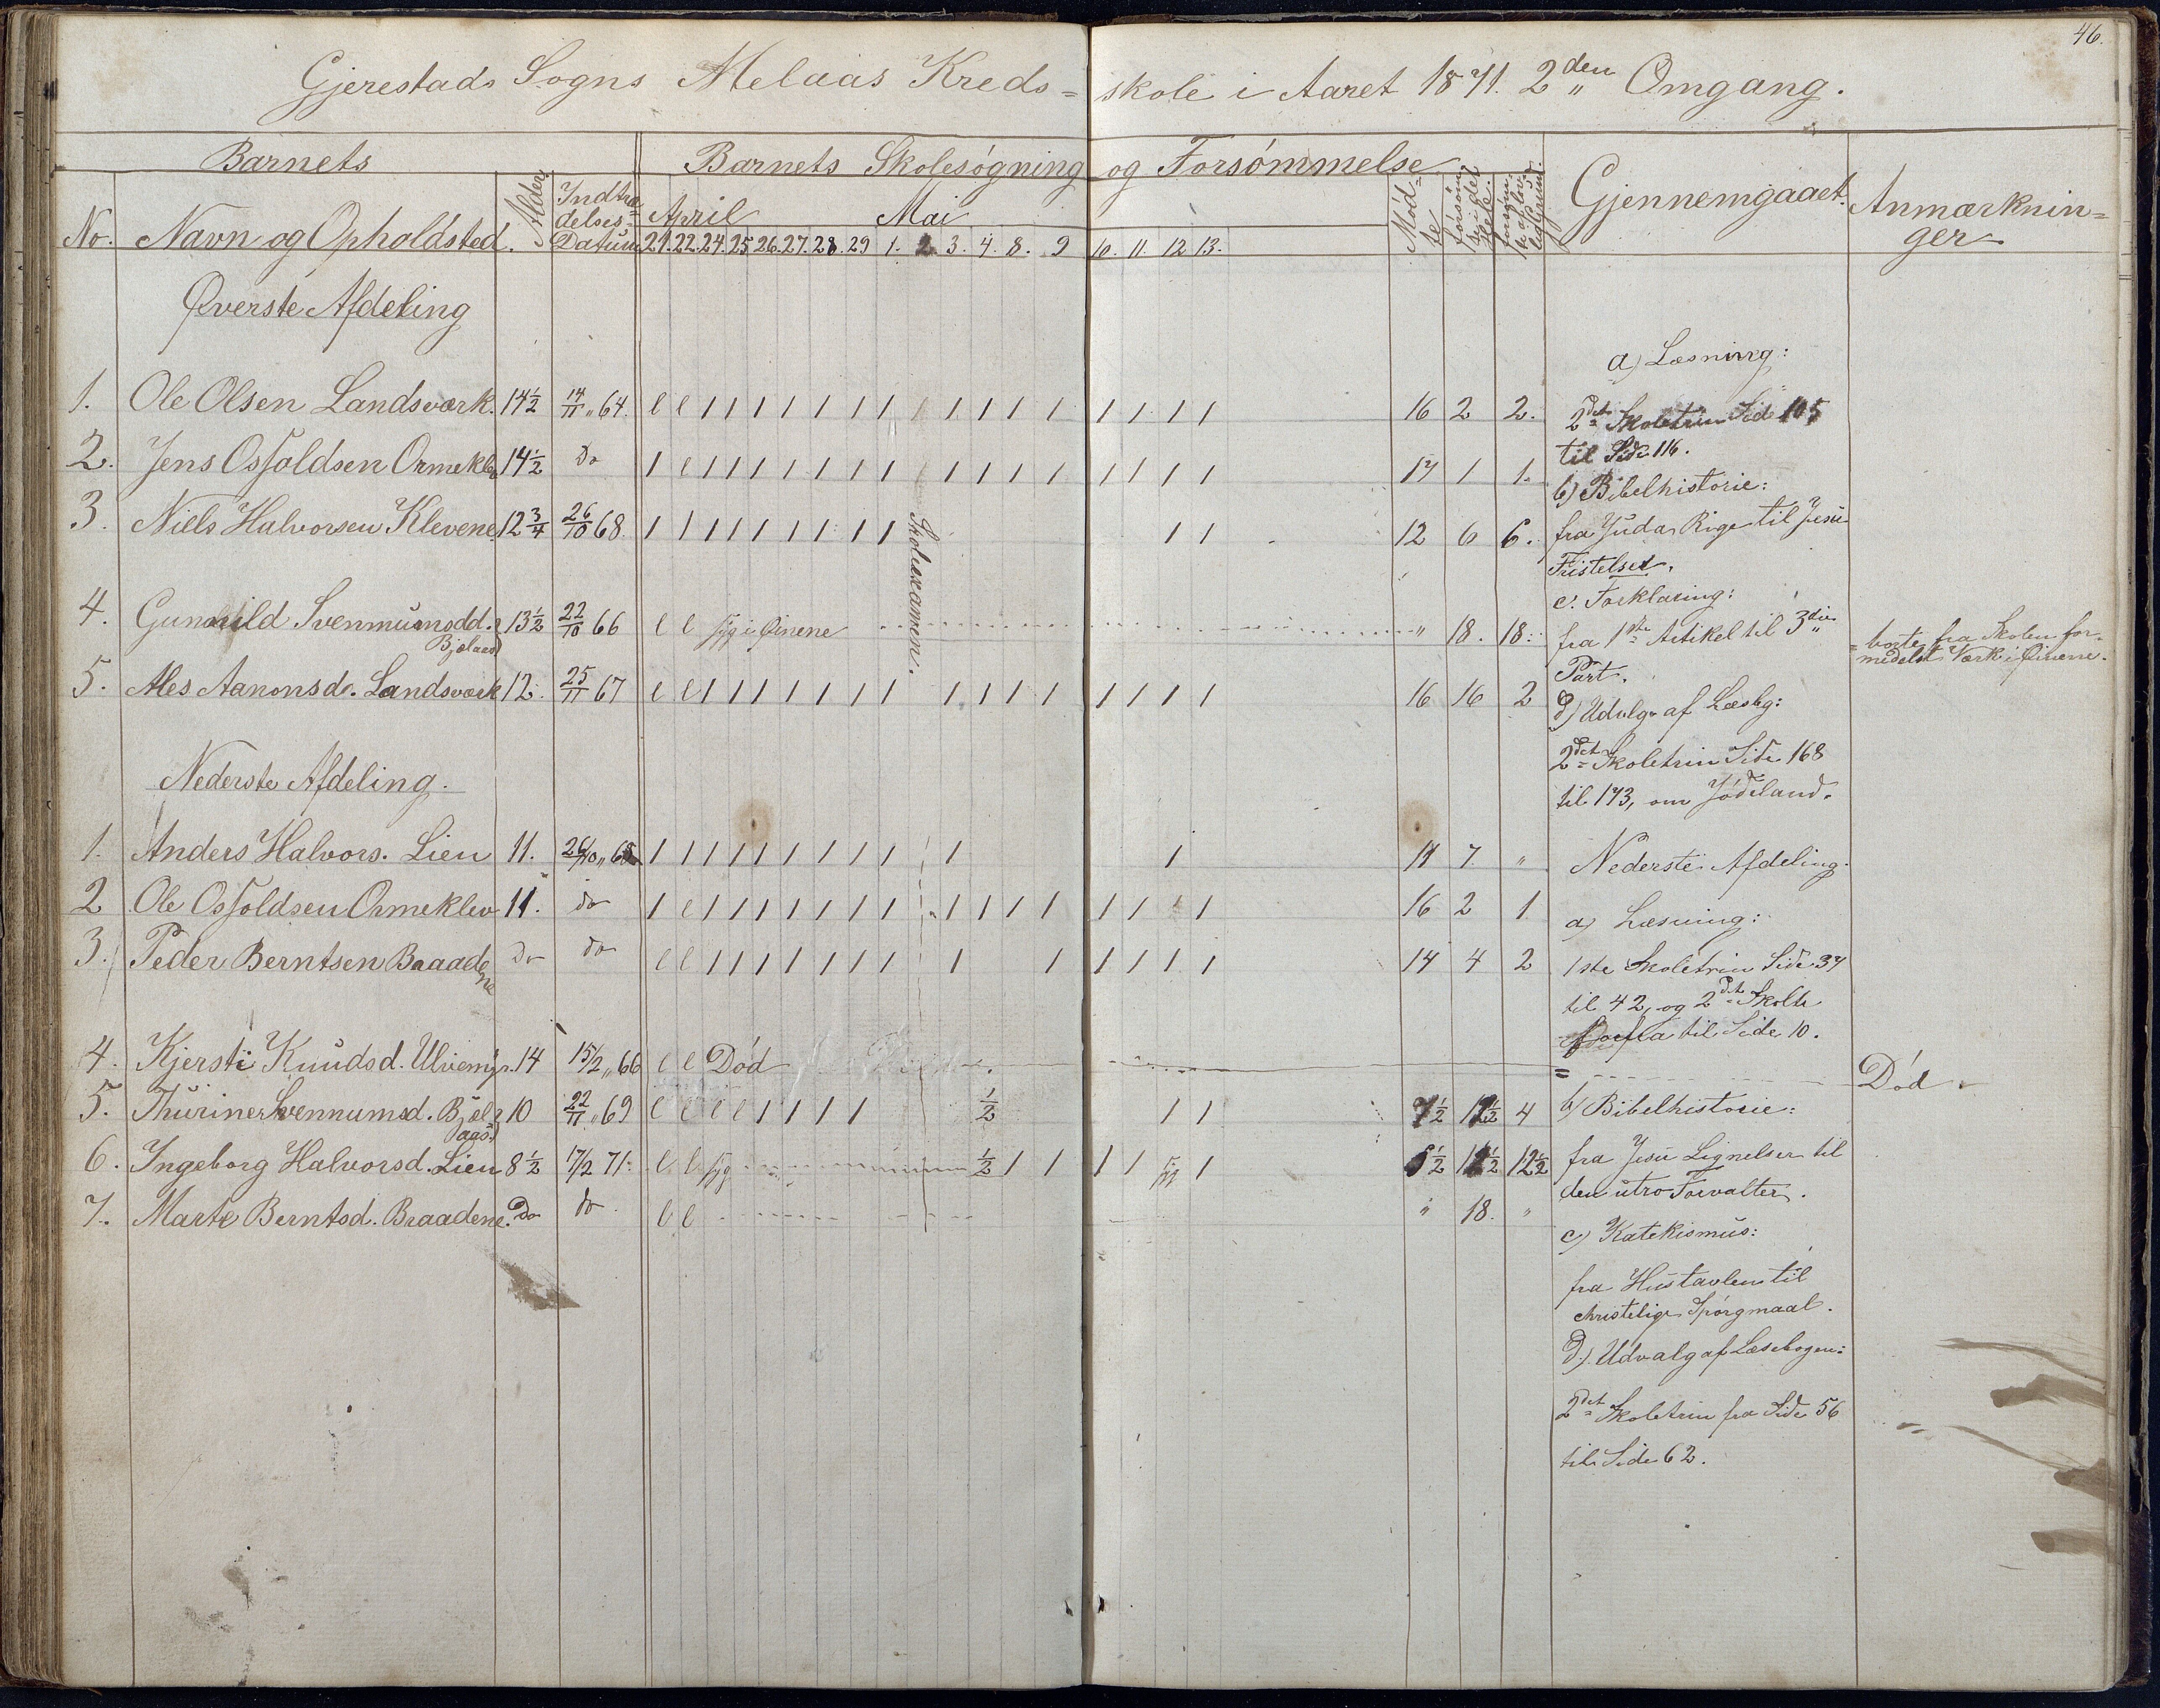 46.
Gjerestads Sogns Melaas Kreds= skole i Aaret 1871. 2den Omgang.
Barnets Barnets Skolesøgning og Forsømmelse
No. Navn og Opholdsted. Alder Indtræ delses= Datum April Mai Mød= te Gjennemgaaet. Anmærknin= ger
21. 22. 24. 25 26. 27. 28. 29 1. 2 3. 4. 8. 9 10. 11. 12 13.
Øverste Afdeling
a) Læsning:
1. Ole Olsen Landsværk. 14½ 14/11 " 64. l l 1 1 1 1 1 1 1 1 1 1 1 1 1 1 1 16 2 2. 2det Skoletrin Side 105
til Side 116.
2. Jens Osfoldsen Ormeklev 14½ Do 1 l 1 1 1 1 1 1 1 1 1 1 1 1 1 1 1 17 1 1.
b) Bibelhistorie:
3. Niels Halvorsen Klevene. 12¾ 26/10 68. 1 1 1 1 1 1 1 1 1 1 1 12 6 6. fra Juda Rige til Jesu
Skoleexamen.
Fristelser.
c. Forklaring:
4. Gunhild Svenmunsdd. Bjølaas 13½ 22/10 66 l l syg i Øinene " 18. 18. fra 1ste Artikel til 3die
Part.
borte fra Skolen for=
medelst Værk i Øinene.
5. Ales Aanonsd. Landsværk 12. 25/11 67 l l 1 1 1 1 1 1 1 1 1 1 1 1 1 1 1 16 16 2 d) Udvlg. af Læsbg:
2det Skoletrin Side 168
til 173, om Jødeland.
Nederste Afdeling.
1. Anders Halvors. Lien 11. 26/10 " 68 1 1 1 1 1 1 1 1 1 1 1 11 7 "
Nederste Afdeling.
2 Ole Osfoldsen Ormeklev 11. do 1 l 1 1 1 1 1 1 1 1 1 1 1 1 1 1 1 16 2 1
a) Læsning:
3. Peder Berntsen Braadene Do do l l 1 1 1 1 1 1 1 1 1 1 1 1 1 14 4 2 1ste Skoletrin Side 37
til 42, og 2det Skoletr
fra til Side 10.
4. Kjersti Knudsd. Ulvemyr. 14 15/2 " 66 l l Død Død.
5. Thurine Svennumsd. Bjøl aas 10 22/11 " 69 l l l l 1 1 1 1 ½ 1 1 7½ 4 b) Bibelhistorie:
6. Ingeborg Halvorsd. Lien 8½ 17/2 71. l l syg ½ 1 1 1 1 syg 1 5½ 12½ 12½ fra Jesu Lignelser til
den utro Forvalter.
7. Marte Berntsd. Braadene. Do do l l " 18. "
c) Katekismus:
fra Hustavlen til
christelige Spørgmaal.
d.) Udvalg af Læsebogen:
2det Skoletrin fra Side 56
til Side 62.